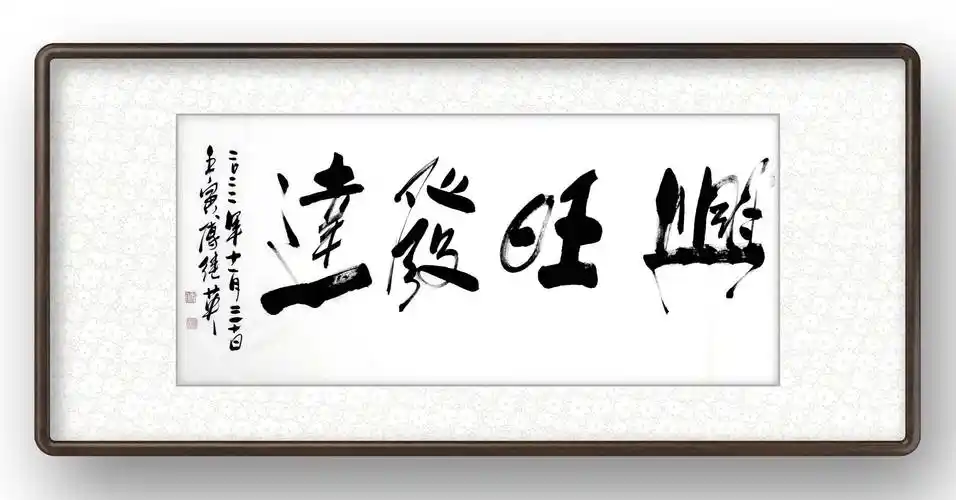 興旺發達
二〇二二年十一月三十日
壬寅傅继英